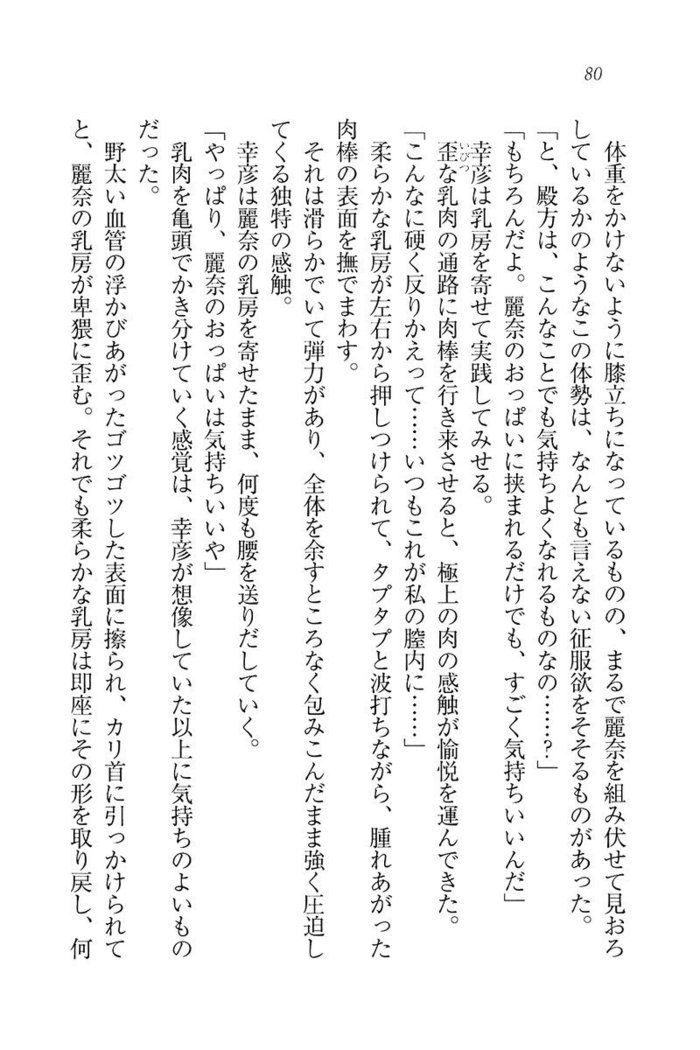 80
体重をかけないように膝立ちになっているものの、まるで麗奈を組み伏せて見おろ
しているかのようなこの体勢は、なんとも言えない征服欲をそそるものがあった。
「と、殿方は、こんなことでも気持ちよくなれるものなの……？」
「もちろんだよ。麗奈のおっぱいに挟まれるだけでも、すごく気持ちいいんだ」
幸彦は乳房を寄せて実践してみせる。
歪な乳肉の通路に肉棒を行き来させると、極上の肉の感触が愉悦を運んできた。
いびつ
「こんなに硬く反りかえって……いつもこれが私の膣内に……」
柔らかな乳房が左右から押しつけられて、タプタプと波打ちながら、腫れあがった
肉棒の表面を撫でまわす。
それは滑らかでいて弾力があり、全体を余すところなく包みこんだまま強く圧迫し
てくる独特の感触。
幸彦は麗奈の乳房を寄せたまま、何度も腰を送りだしていく。
「やっぱり、麗奈のおっぱいは気持ちいいや」
乳肉を亀頭でかき分けていく感覚は、幸彦が想像していた以上に気持ちのよいもの
だった。
野太い血管の浮かびあがったゴツゴツした表面に擦られ、カリ首に引っかけられて
と、麗奈の乳房が卑猥に歪む。それでも柔らかな乳房は即座にその形を取り戻し、何